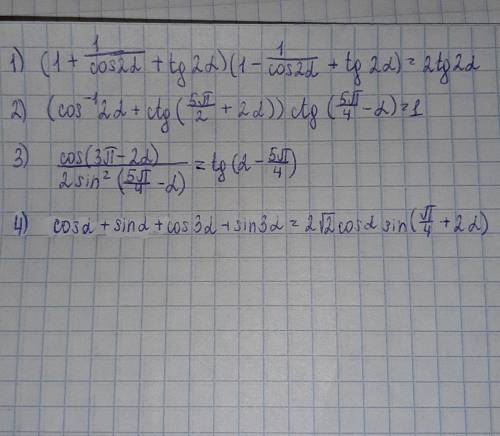 1) (1 + 1/cos2α + tg 2α)(1 - 1/cos2α + tg 2α) = 2tg2α
2) (cos⁻¹2α + ctg(5π/2 + 2α)) ctg(5π/4 - α) = 1
3) cos(3π - 2α) / 2sin²(5π/4 - α) = tg(α - 5π/4)
4) cosα + sinα + cos3α + sin3α = 2√2 cosα sin(π/4 + 2α)